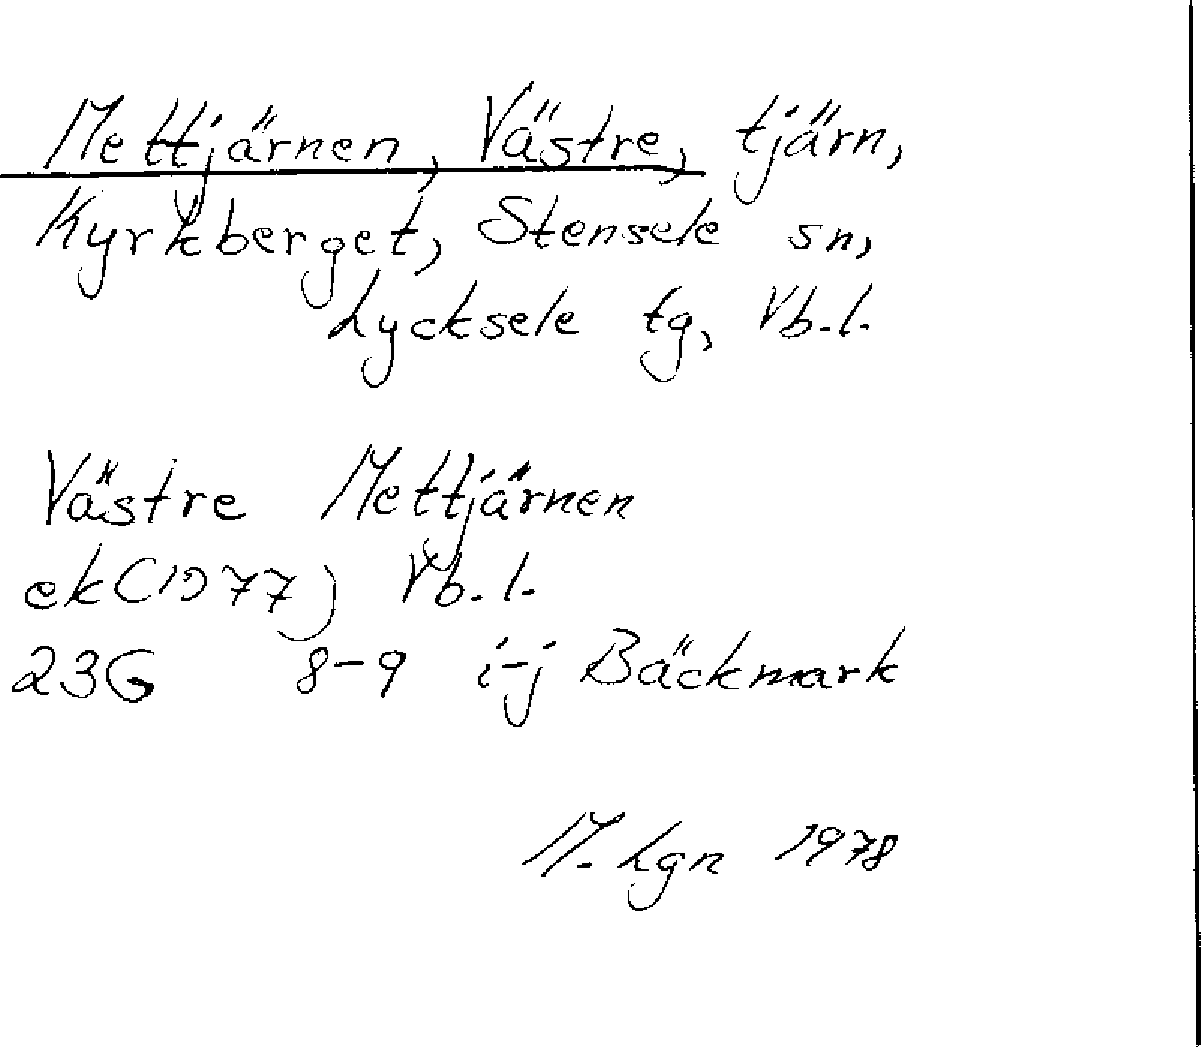 Mettjärnen, Västre, tjärn,
Kyrkberget, Stensele sn,
Lycksele tg, Vb.l.
Västre Mettjärnen
ek(1977) Vb.l.
23G 8-9 i-j Bäckmark
M. Lgn 1978